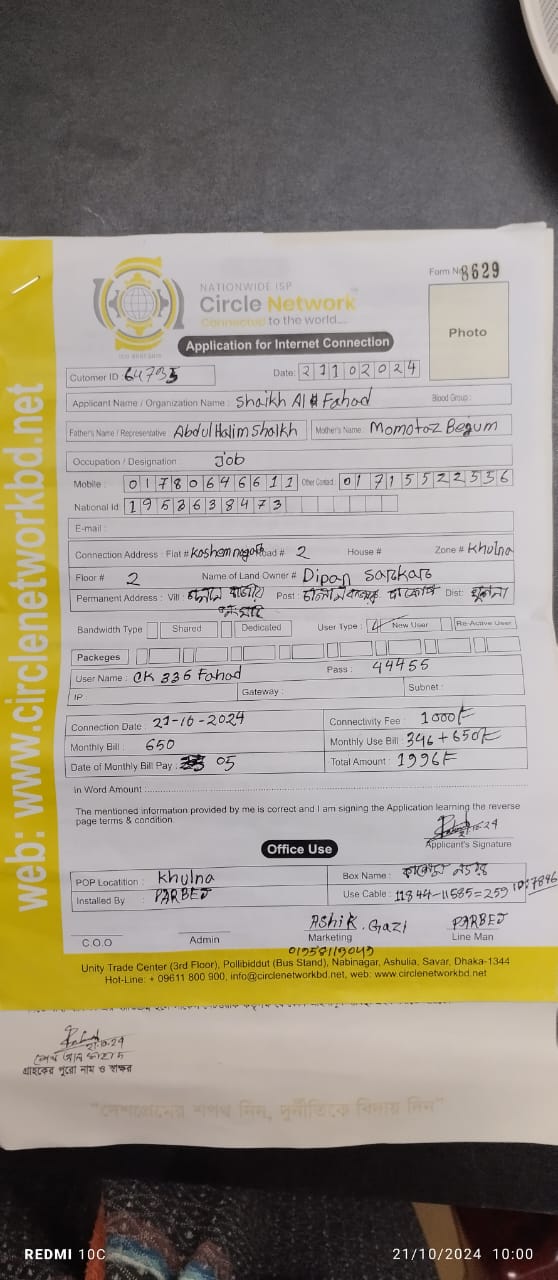 web: www.circlenetworkbd.net
Form No 8629
NATIONWIDE ISP
Circle Network
Connected to the world....
Photo
Application for Internet Connection
Cutomer ID: 64735 Date: 21102024
Applicant Name / Organization Name : Shaikh Al Fahad Blood Group :
Father's Name / Representative Abdul Halim Shaikh Mother's Name: Momotaz Begum
Occupation / Designation Job
Mobile : 01780646611 Other Contact : 01715522536
National Id 1953638473
E-mail :
Connection Address : Flat # Road # 2 House # Zone # Khulna
Floor # 2 Name of Land Owner # Dipan Sarkar
Permanent Address : Vill Post : Dist: খুলনা
Bandwidth Type Shared Dedicated User Type : New User Re-Active User
Packeges
User Name : CK 336 Fahad Pass : 44455
IP : Gateway : Subnet :
Connection Date : 21-10-2024 Connectivity Fee : 1000/=
Monthly Bill : 650 Monthly Use Bill : 346+650/=
Date of Monthly Bill Pay : 05 Total Amount : 1996/=
In Word Amount :
The mentioned information provided by me is correct and I am signing the Application learning the reverse
page terms & condition.
Applicant's Signature
Office Use
POP Locatition : Khulna Box Name :
Installed By : PARBEJ Use Cable : 11844-11585=259 ID:7896
Ashik. Gazi PARBEJ
C.O.O Admin Marketing Line Man
Unity Trade Center (3rd Floor), Pollibiddut (Bus Stand), Nabinagar, Ashulia, Savar, Dhaka-1344
Hot-Line: + 09611 800 900, info@circlenetworkbd.net, web: www.circlenetworkbd.net
21.10.24
শেখ আল ফাহাদ
গ্রাহকের পুরো নাম ও স্বাক্ষর
“দেশপ্রেমের শপথ নিন, দুর্নীতিকে বিদায় দিন”
REDMI 10C 21/10/2024 10:00